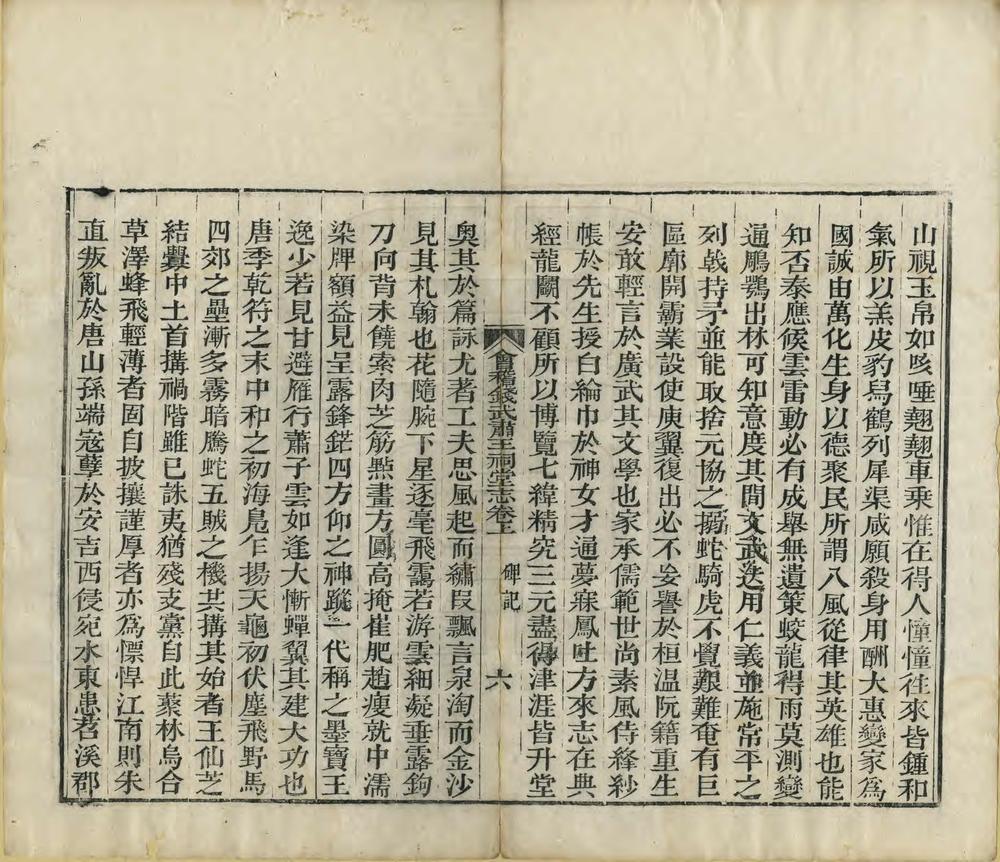 山視玉帛如咳唾翹翹車乘惟在得人憧憧往來皆鍾和
氣所以羔皮豹舄鶴列犀渠咸願殺身用酬大惠變家爲
國誠由萬化生身以德聚民所謂八風從律其英雄也能
知否泰應候雲雷動必有成舉無遺策蛟龍得雨莫測變
通鵰鶚出林可知意度其間文武迭用仁義並施常平之
列戟持矛並能取捨元協之搦蛇騎虎不覺艱難奄有巨
區廓開霸業設使庾翼復出必不妄譽於桓温阮籍重生
安敢輕言於廣武其文學也家承儒範世尚素風侍絳紗
帳於先生授白綸巾於神女才通夢寐鳳吐方來志在典
經龍鬭不顧所以博覽七緯精究三元盡得津涯皆升堂
會稽錢武肅王祠堂志卷上 碑記 六
奥其於篇詠尤者工夫思風起而繡段飄言泉淘而金沙
見其札翰也花隨腕下星逐毫飛靄若游雲細凝垂露鉤
刀向背末饒索肉芝筋㸃畫方圓高掩崔肥趙瘦就中濡
染牌額益見呈露鋒鋩四方仰之神蹤一代稱之墨寶王
逸少若見甘避雁行蕭子雲如逢大慚蟬翼其建大功也
唐季乾符之末中和之初海鳧乍揚天龜初伏塵飛野馬
四郊之壘漸多霧暗騰蛇五賊之機共搆其始者王仙芝
結釁中土首搆禍階雖已誅夷猶殘支黨自此藂林烏合
草澤蜂飛輕薄者固自披攘謹厚者亦爲慓悍江南則朱
直叛亂於唐山孫端寇孽於安吉西侵宛水東患苕溪郡